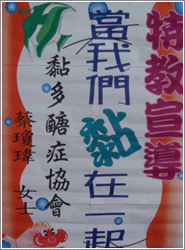 特教宣導
當我們黏在一起
黏多醣症協會
蔡瓊瑋 女士